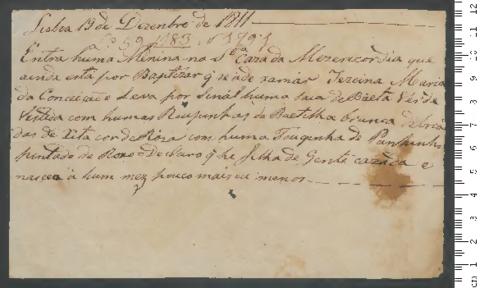 Lisboa 19 de Dezenbro de 1811
59 1183 1791
Entra huma Minina na Sta Caza da Mezericordia que
ainda está por Baptizar q se ade xamar Tereina Maria
da Conceição e leva por Sinal huma saia de Baeta Verde
Vestida com humas Roupinhas de Baetilha branca debrua
das de Fita cor de Roza com huma Touquinha de Paninho
pintado de Roxo e Declaro q he filha de Gente cazada e
nasceu á hum mez pouco mais ou menos